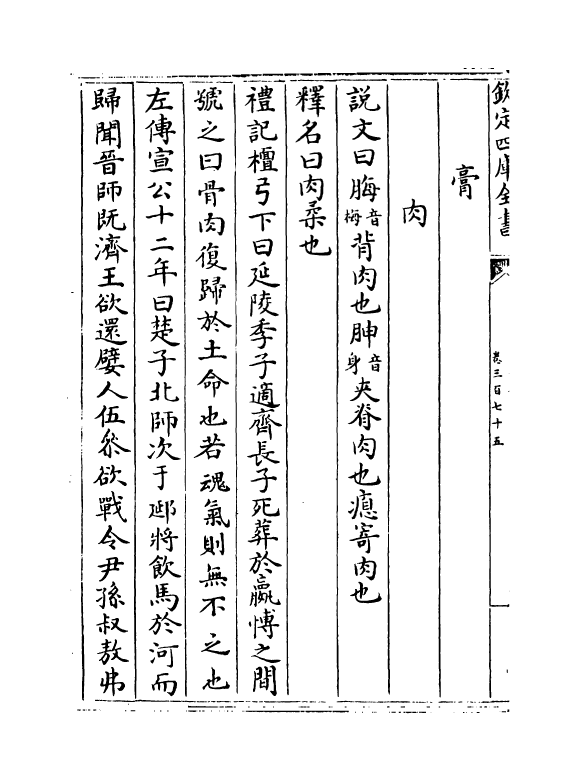 欽定四庫全書
卷三百七十五
膏
肉
説文曰脢音梅背肉也胂音身夾脊肉也瘜寄肉也
釋名曰肉柔也
禮記檀弓下曰延陵季子適齊長子死葬於嬴愽之間
號之曰骨肉復歸於土命也若魂氣則無不之也
左傳宣公十二年曰楚子北師次于郔將飲馬於河而
歸聞晉師既濟王欲還嬖人伍叅欲戰令尹孫叔敖弗